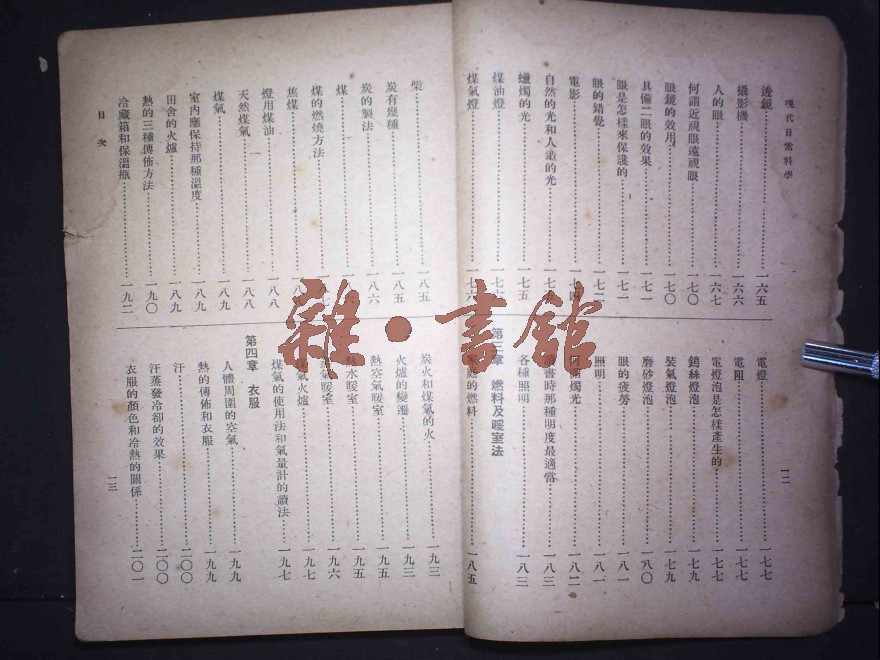 現代日常科學
一二
透鏡 一六五
攝影機 一六六
人的眼 一六七
何謂近視眼遠視眼 一七〇
眼鏡的效用 一七〇
具備二眼的效果 一七一
眼是怎樣來保護的 一七一
眼的錯覺 一七二
電影 一七四
自然的光和人造的光 一七五
蠟燭的光 一七五
煤油燈
煤氣燈 一七六
電燈 一七七
電阻 一七七
電燈泡是怎樣產生的 一七七
鎢絲燈泡 一七九
裝氣燈泡 一七九
磨砂燈泡 一八〇
眼的疲勞 一八一
照明 一八一
燭光 一八二
讀書時那種明度最適當 一八三
各種照明 一八三
第三章 燃料及暖室法
家庭的燃料 一八五
柴 一八五
炭有幾種 一八五
炭的製法 一八六
煤
煤的燃燒方法
焦煤
燈用煤油 一八八
天然煤氣 一八八
煤氣 一八九
室內應保持那種溫度 一八九
田舍的火爐 一八九
熱的三種傳佈方法 一九〇
冷藏箱和保溫瓶 一九二
目次
炭火和煤氣的火 一九三
火爐的變遷 一九三
熱空氣暖室 一九五
熱水暖室 一九五
蒸氣暖室 一九六
煤氣火爐 一九七
煤氣的使用法和氣量計的讀法 一九七
第四章 衣服
人體周圍的空氣 一九九
熱的傳佈和衣服 一九九
汗 二〇〇
汗蒸發冷卻的效果 二〇〇
衣服的顏色和冷熱的關係 二〇一
一三
雜·書館